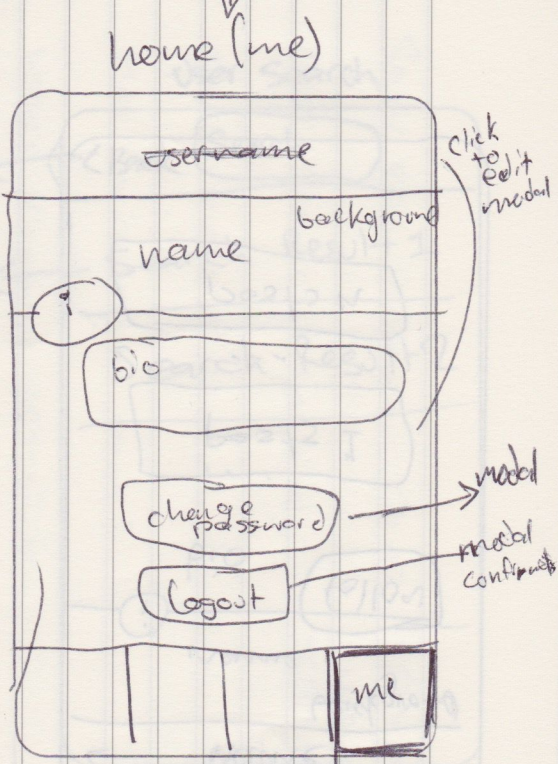 home (me)
username
click
to
edit
modal
background
name
i
bio
change
password
modal
logout
modal
confirm
me